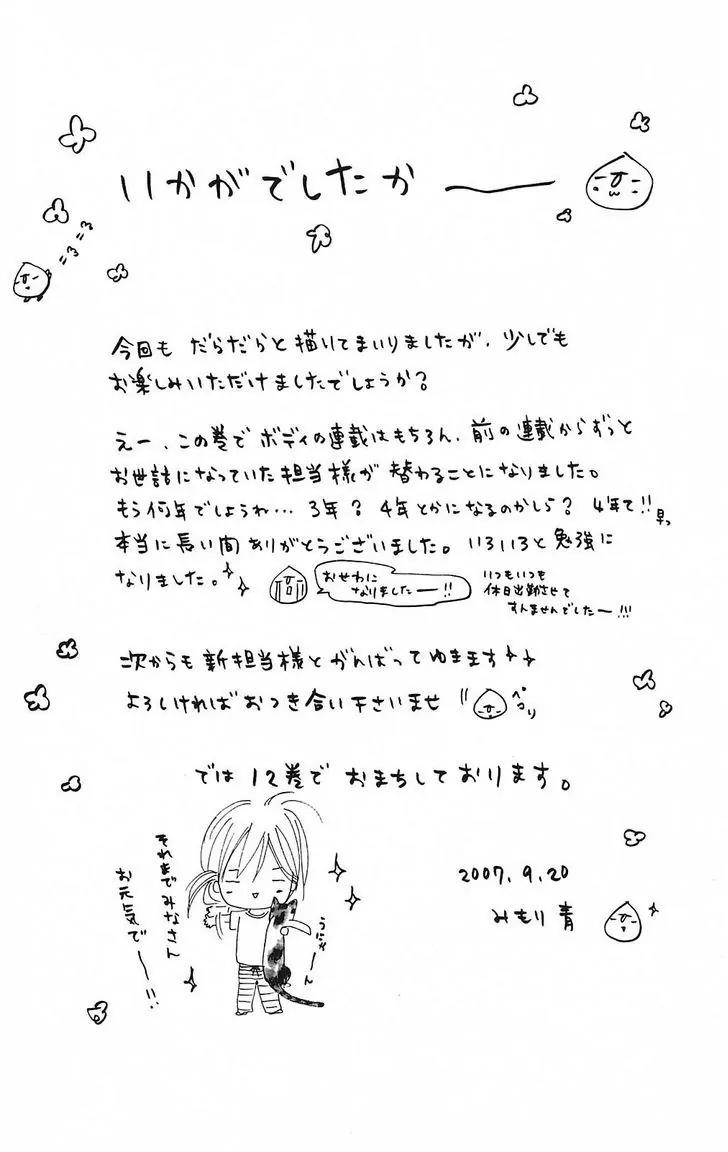 いかがでしたかー
今回も だらだらと描いてまいりましたが、少しでも
お楽しみいただけましたでしょうか?
えー、この巻で ボディの連載はもちろん、前の連載からずっと
お世話になっていた担当様が 替わることになりました。
もう何年でしょうね… 3年? 4年とかになるのかしら? 4年て!! 早っ
本当に長い間ありがとうございました。いろいろと勉強に
なりました。
おせわに
なりましたー!!
いつもいつも
休日出勤させて
すんませんでしたー!!!
次からも新担当様とがんばってゆきます
よろしければおつき合い下さいませ
ペコリ
では12巻で おまちしております。
それまでみなさん
お元気でー!!
うにゃーん
2007.9.20
みもり青